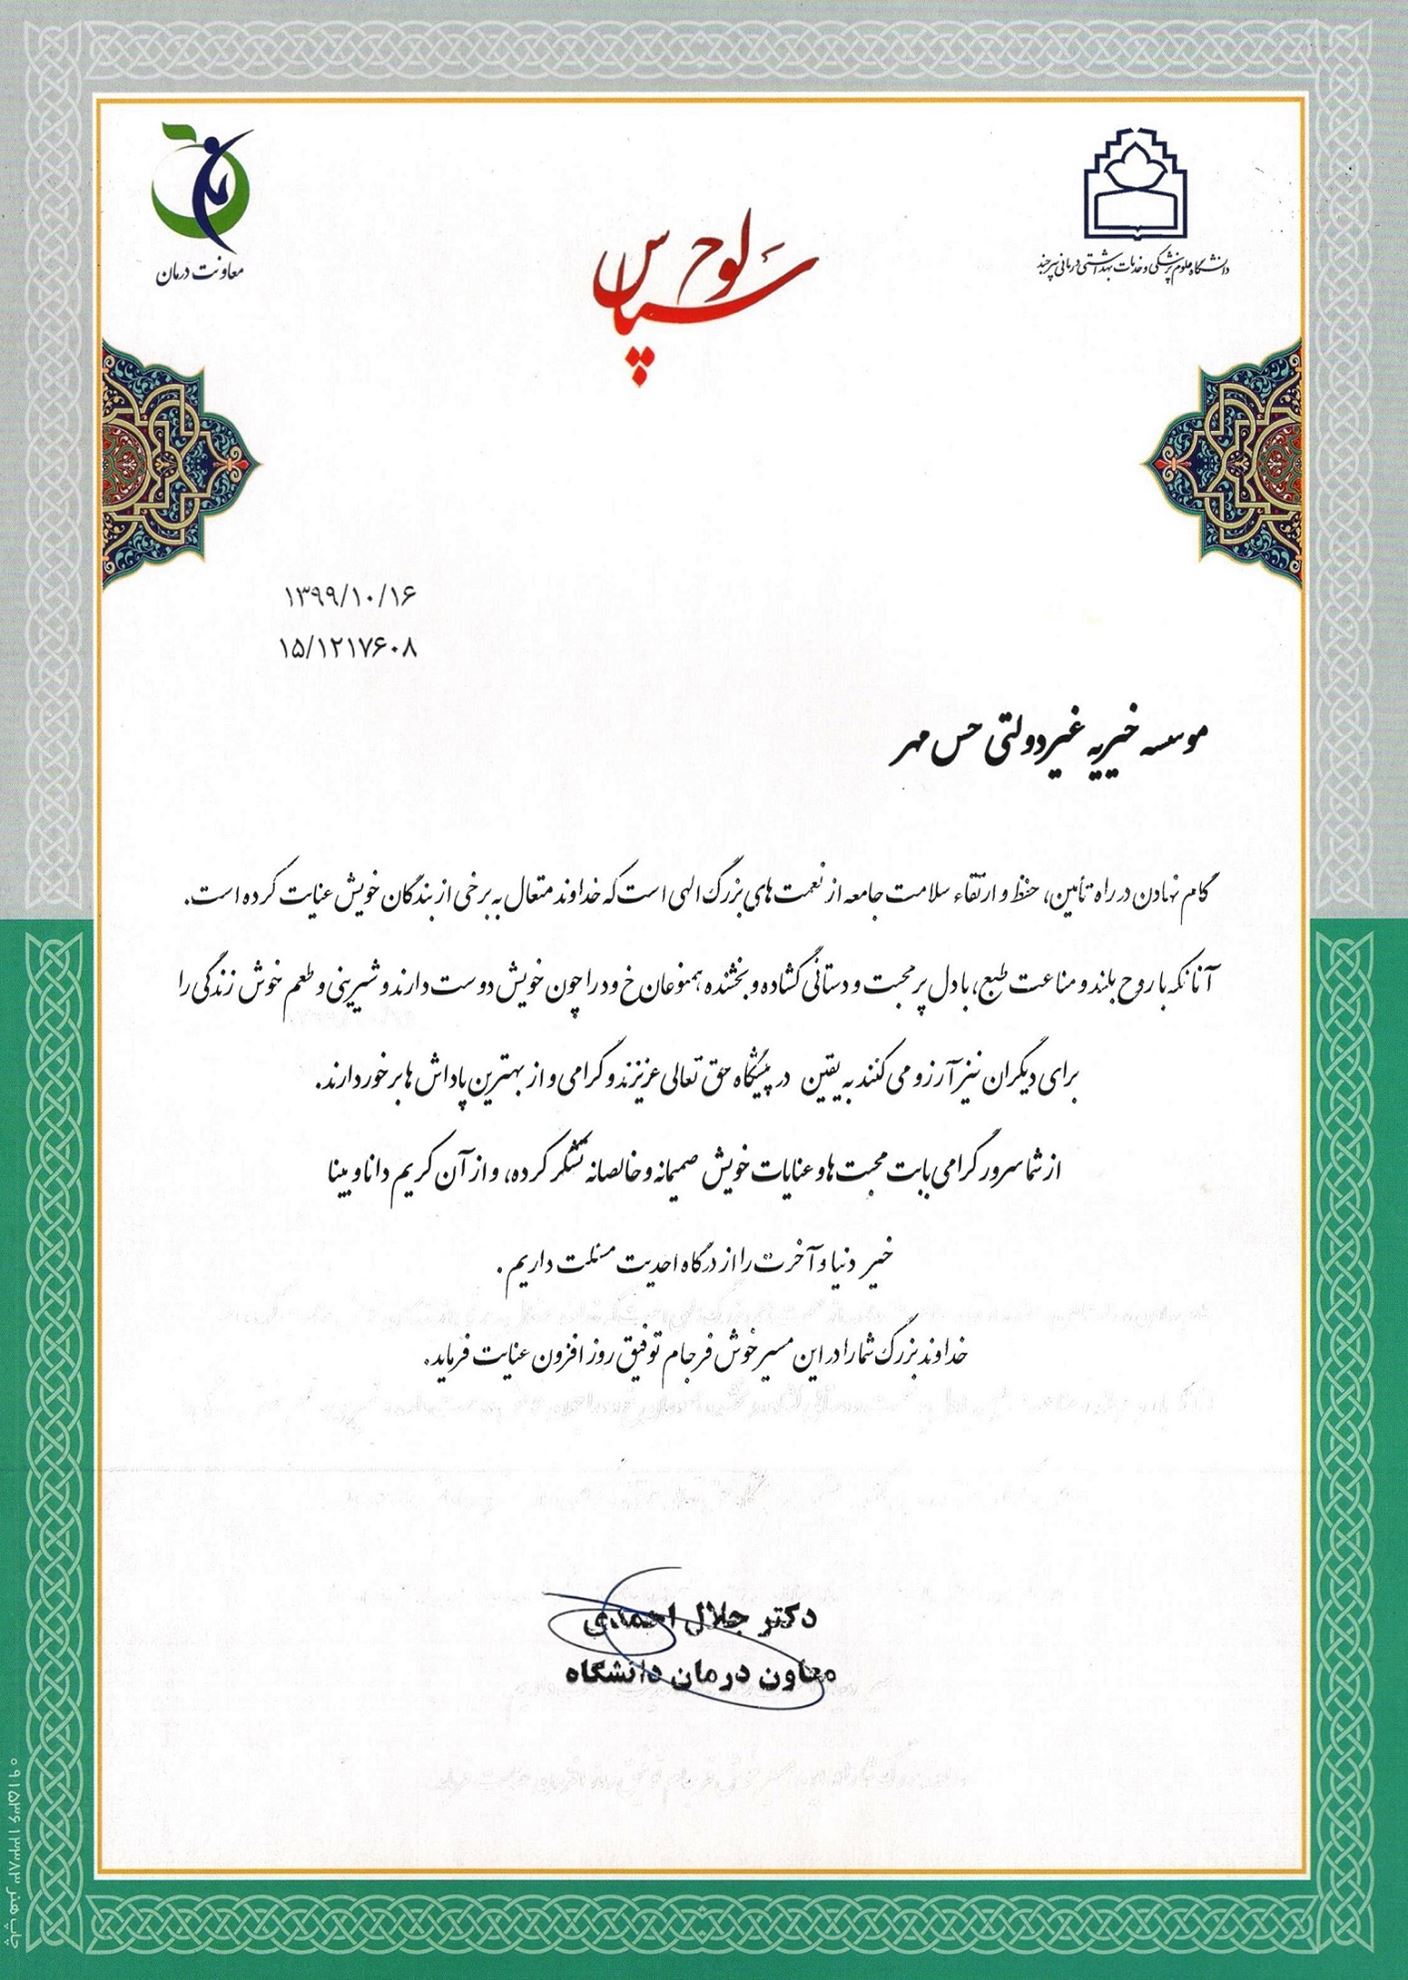 دانشگاه علوم پزشکی و خدمات بهداشتی درمانی بیرجند
معاونت درمان
لوح سپاس
۱۳۹۹/۱۰/۱۶
۱۵/۱۲۱۷۶۰۸
موسسه خیریه غیردولتی حس مهر
گام نهادن در راه تأمین، حفظ و ارتقاء سلامت جامعه از نعمت های بزرگ الهی است که خداوند متعال به برخی از بندگان خویش عنایت کرده است.
آنانکه با روح بلند و مناعت طبع، با دل پر محبت و دستانی گشاده و بخشنده همنوعان خود را چون خویش دوست دارند و شیرینی و طعم خوش زندگی را
برای دیگران نیز آرزو می کنند به یقین در پیشگاه حق تعالی عزیزند و گرامی و از بهترین پاداش ها برخوردارند.
از شما سرور گرامی بابت محبت ها و عنایات خویش صمیمانه و خالصانه تشکر کرده، و از آن کریم دانا و بینا
خیر دنیا و آخرت را از درگاه احدیت مسئلت داریم .
خداوند بزرگ شما را در این مسیر خوش فرجام توفیق روز افزون عنایت فرماید.
دکتر جلال احمدی
معاون درمان دانشگاه
چاپ هنر ۰۹۱۵۳۶۱۳۳۸۳